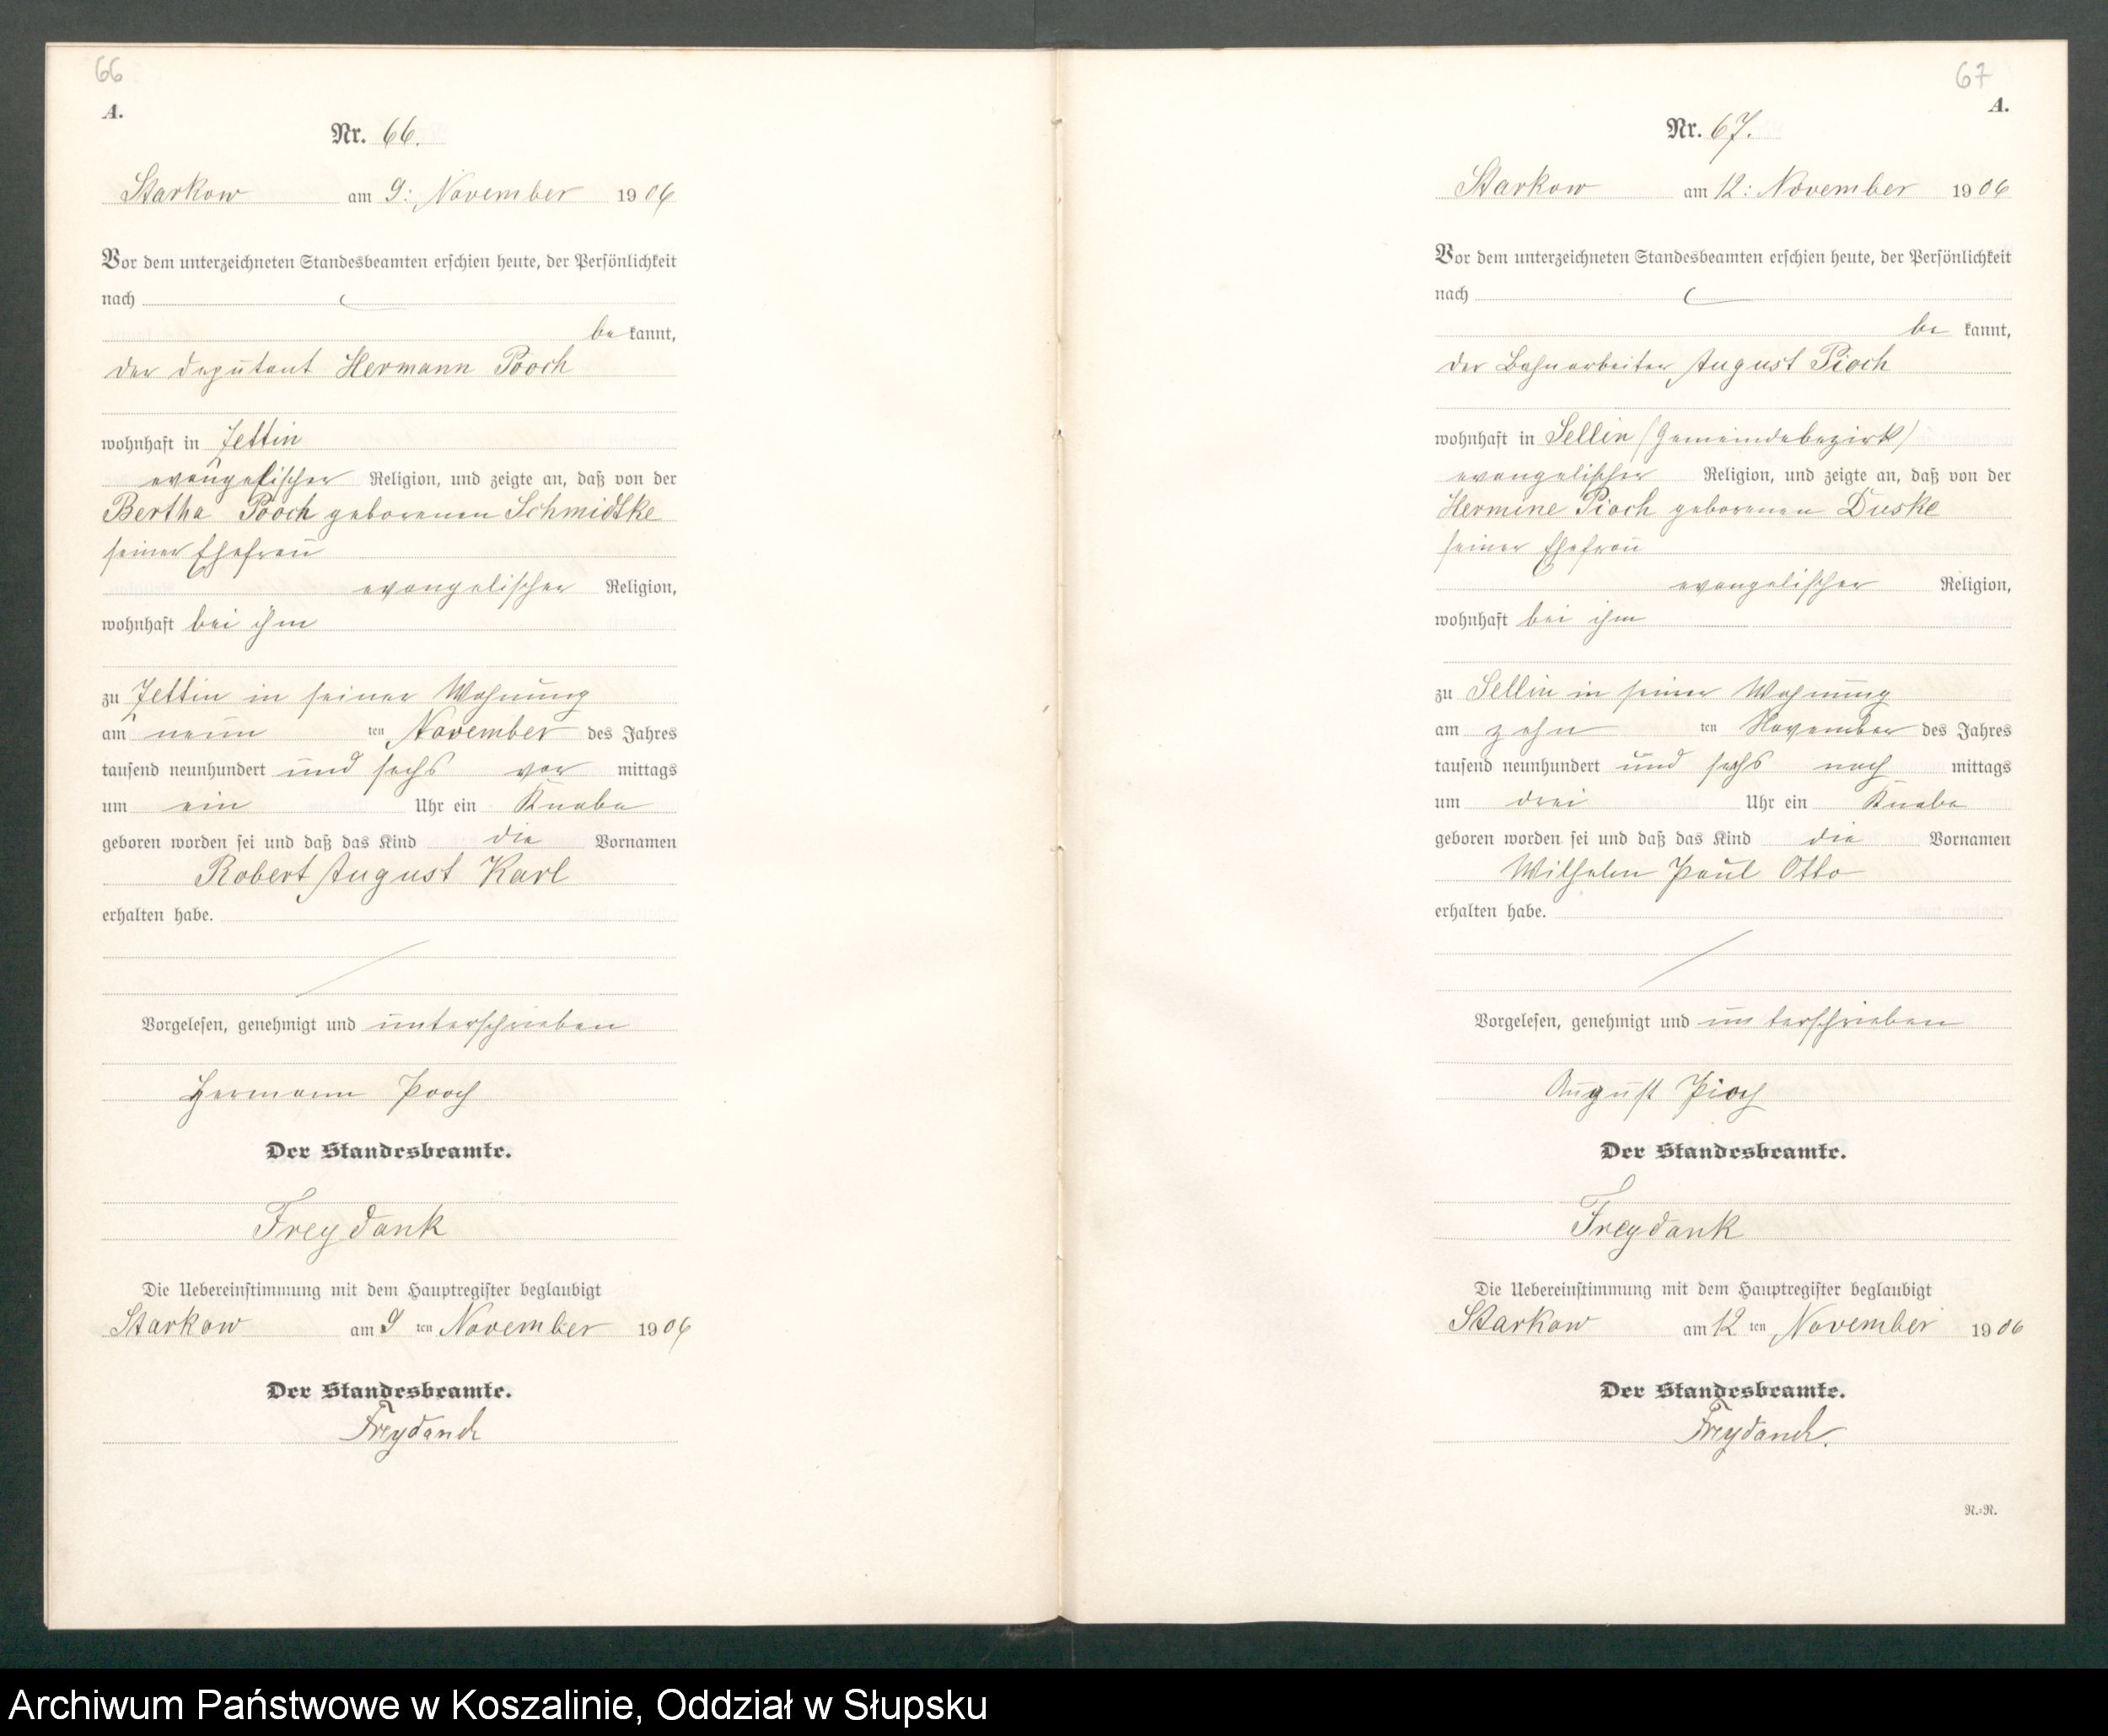 66
A.
Nr. 66.
Starkow am 9: November 1906
Vor dem unterzeichneten Standesbeamten erschien heute, der Persönlichkeit
nach
be kannt,
der Deputant Hermann Pooch
wohnhaft in Jettin
evangelischer Religion, und zeigte an, daß von der
Bertha Pooch geborenen Schmidtke
seiner Ehefrau
evangelischer Religion,
wohnhaft bei ihm
zu Jettin in seiner Wohnung
am neun ten November des Jahres
tausend neunhundert und sechs vor mittags
um ein Uhr ein Knabe
geboren worden sei und daß das Kind die Vornamen
Robert August Karl
erhalten habe.
Vorgelesen, genehmigt und unterschrieben
Hermann Pooch
Der Standesbeamte.
Freydank
Die Uebereinstimmung mit dem Hauptregister beglaubigt
Starkow am 9 ten November 1906
Der Standesbeamte.
Freydank
67
A.
Nr. 67.
Starkow am 12: November 1906
Vor dem unterzeichneten Standesbeamten erschien heute, der Persönlichkeit
nach
be kannt,
der Bahnarbeiter August Pioch
wohnhaft in Sellin (Gemeindebezirk)
evangelischer Religion, und zeigte an, daß von der
Hermine Pioch geborenen Duske
seiner Ehefrau
evangelischer Religion,
wohnhaft bei ihm
zu Sellin in seiner Wohnung
am zehn ten November des Jahres
tausend neunhundert und sechs nach mittags
um drei Uhr ein Knabe
geboren worden sei und daß das Kind die Vornamen
Wilhelm Paul Otto
erhalten habe.
Vorgelesen, genehmigt und unterschrieben
August Pioch
Der Standesbeamte.
Freydank
Die Uebereinstimmung mit dem Hauptregister beglaubigt
Starkow am 12 ten November 1906
Der Standesbeamte.
Freydank.
R.=R.
Archiwum Państwowe w Koszalinie, Oddział w Słupsku